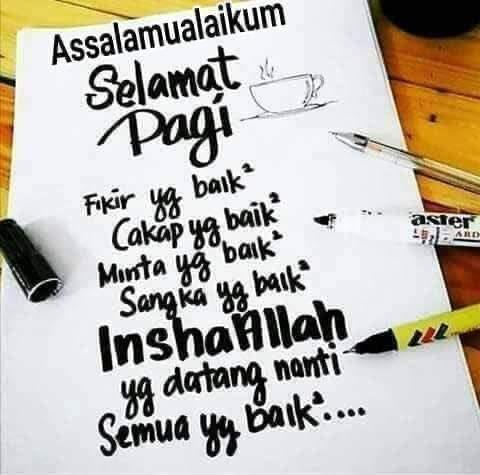 Assalamualaikum
Selamat
Pagi
Fikir yg baik²
Cakap yg baik²
Minta yg baik²
Sangka yg baik²
InshaAllah
yg datang nanti
Semua yg baik²....
aster
ARD